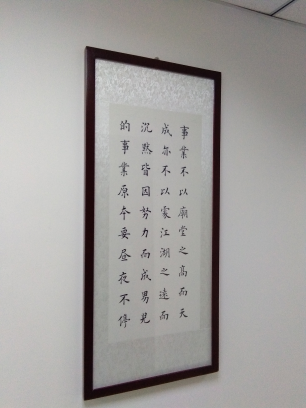 事業不以廟堂之高而天
成亦不以江湖之遠而
沉默皆因努力而成男兒
的事業原本要昼夜不停